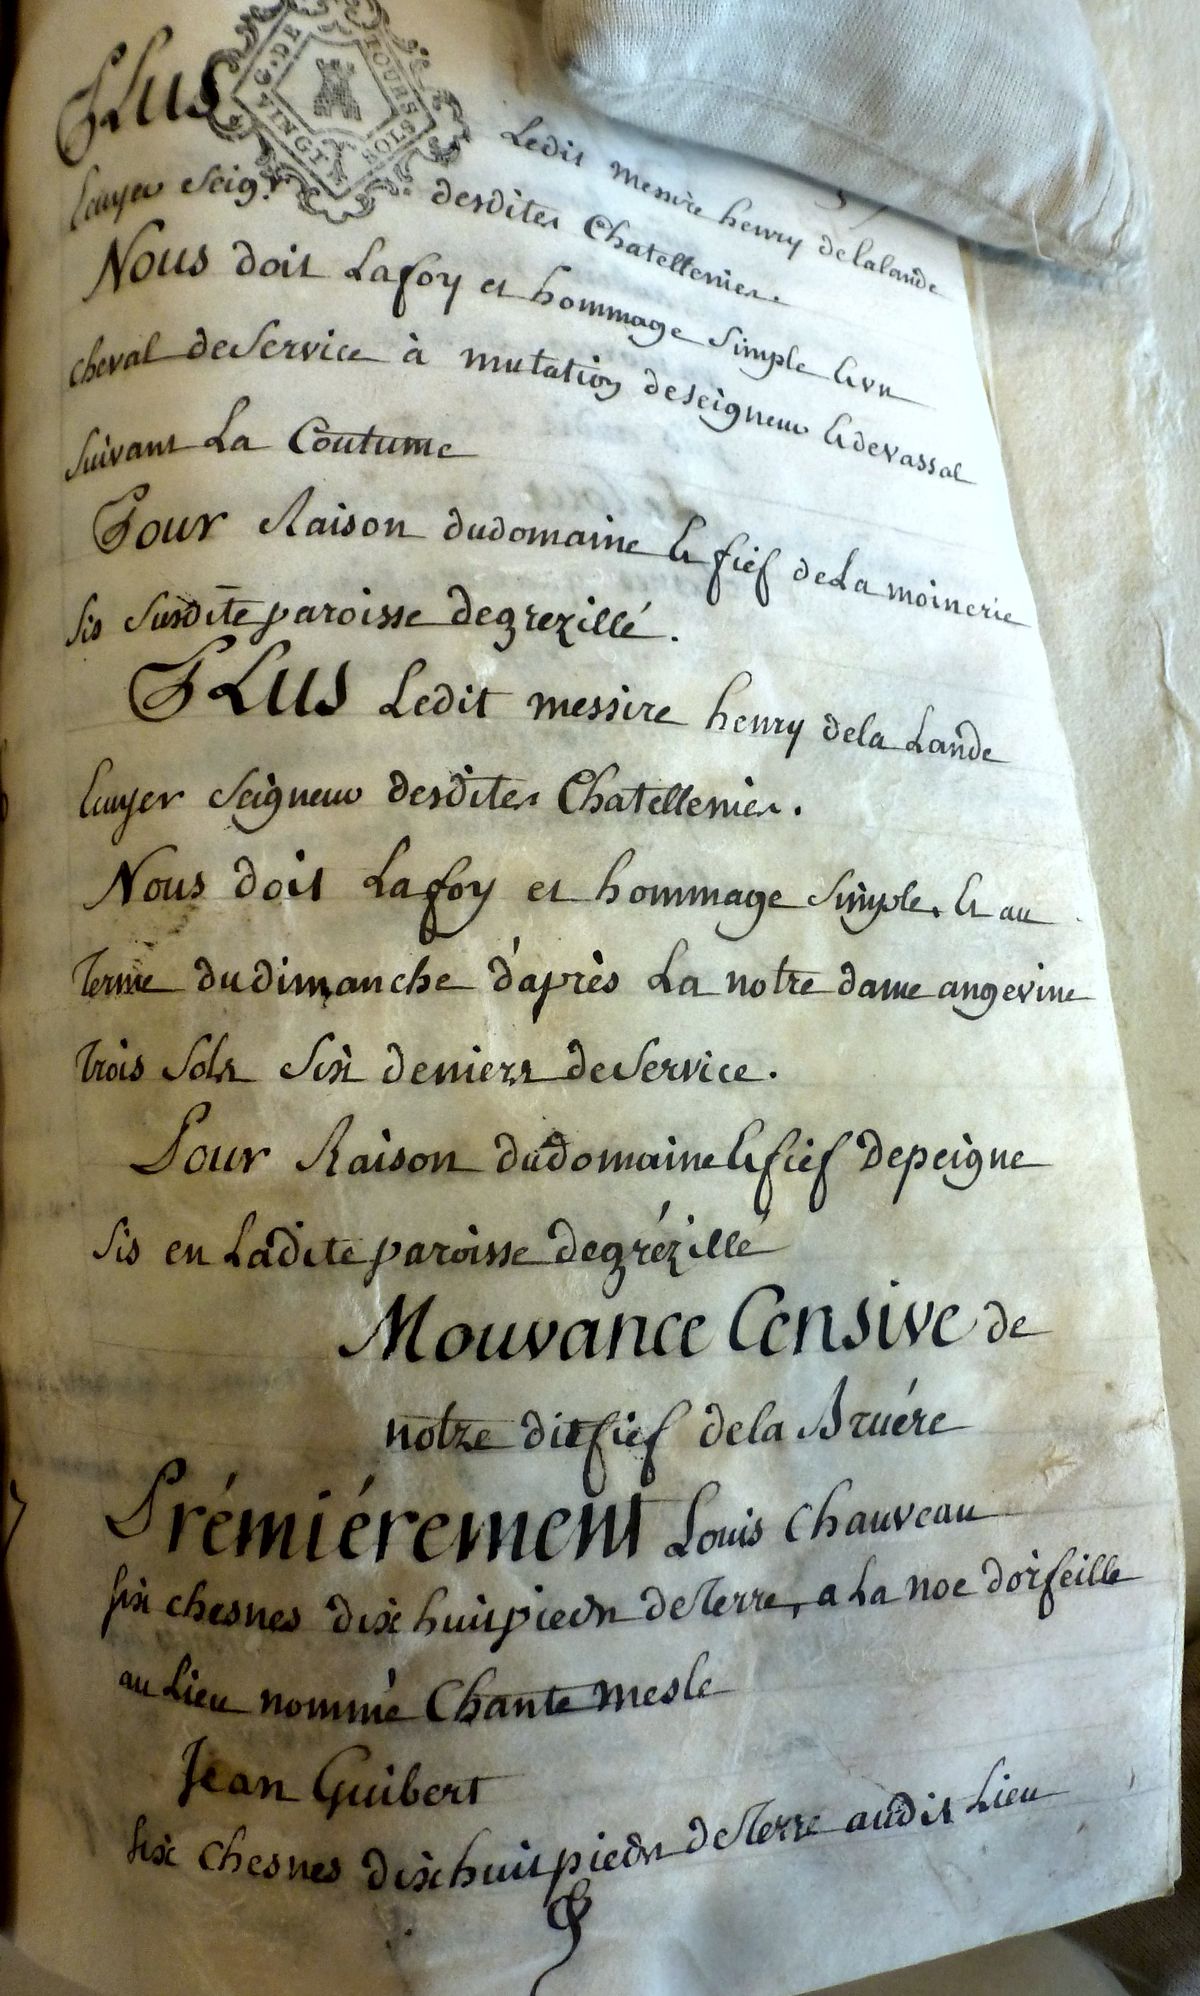 G. DE TOURS
VINGT SOLS
PLus Ledit messire henry delalande
Ecuyer Seigr. desdites Chatellenies.
Nous doit La foy et hommage Simple & un
cheval de Service à mutation de seigneur & de vassal
suivant La Coutume
Pour Raison du domaine & fief de La moinerie
sis susdite paroisse de grezillé.
PLUS Ledit messire henry dela Lande
Ecuyer Seigneur desdites Chatellenies.
Nous doit La foy et hommage Simple. & au
terme du dimanche d'après La notre dame angevine
trois Sols Six deniers de Service.
Pour Raison du domaine & fief de peigne
sis en Ladite paroisse de grézillé
Mouvance Censive de
notre dit fief de la Bruére
Prémiérement Louis Chauveau
six chesnes dix huit pieds de Terre, a La noe d'oifeille
au Lieu nommé Chante mesle
Jean Guibert
six chesnes dix huit pieds de Terre audit Lieu